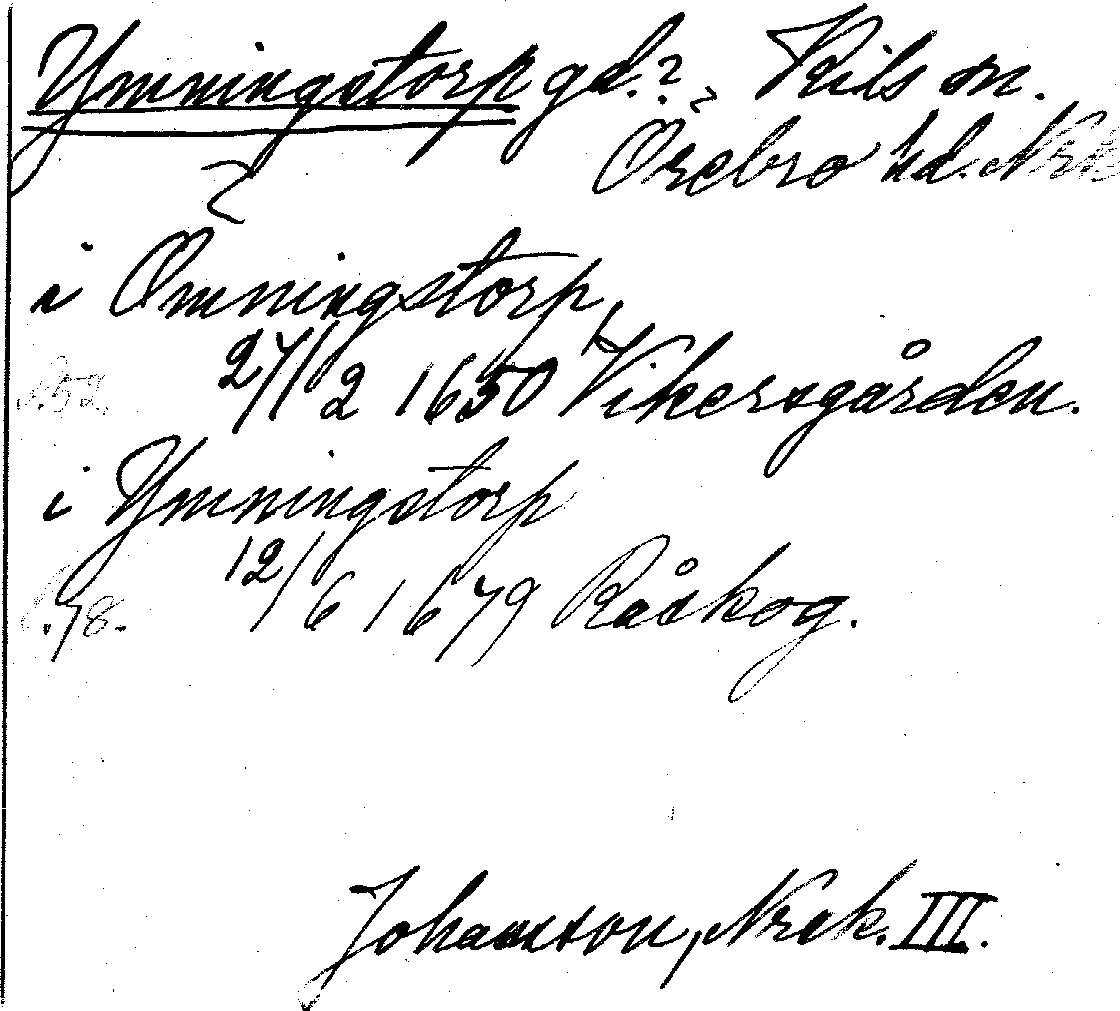 Ymningstorp gd.?, Kils sn.
?
Örebro hd. Nrk
i Ömningstorp,
S. 52. 27/2 1650 Vikersgården.
i Ymningstorp
S. 78. 12/6 1679 Råskog.
Johamson, Nrck. III.